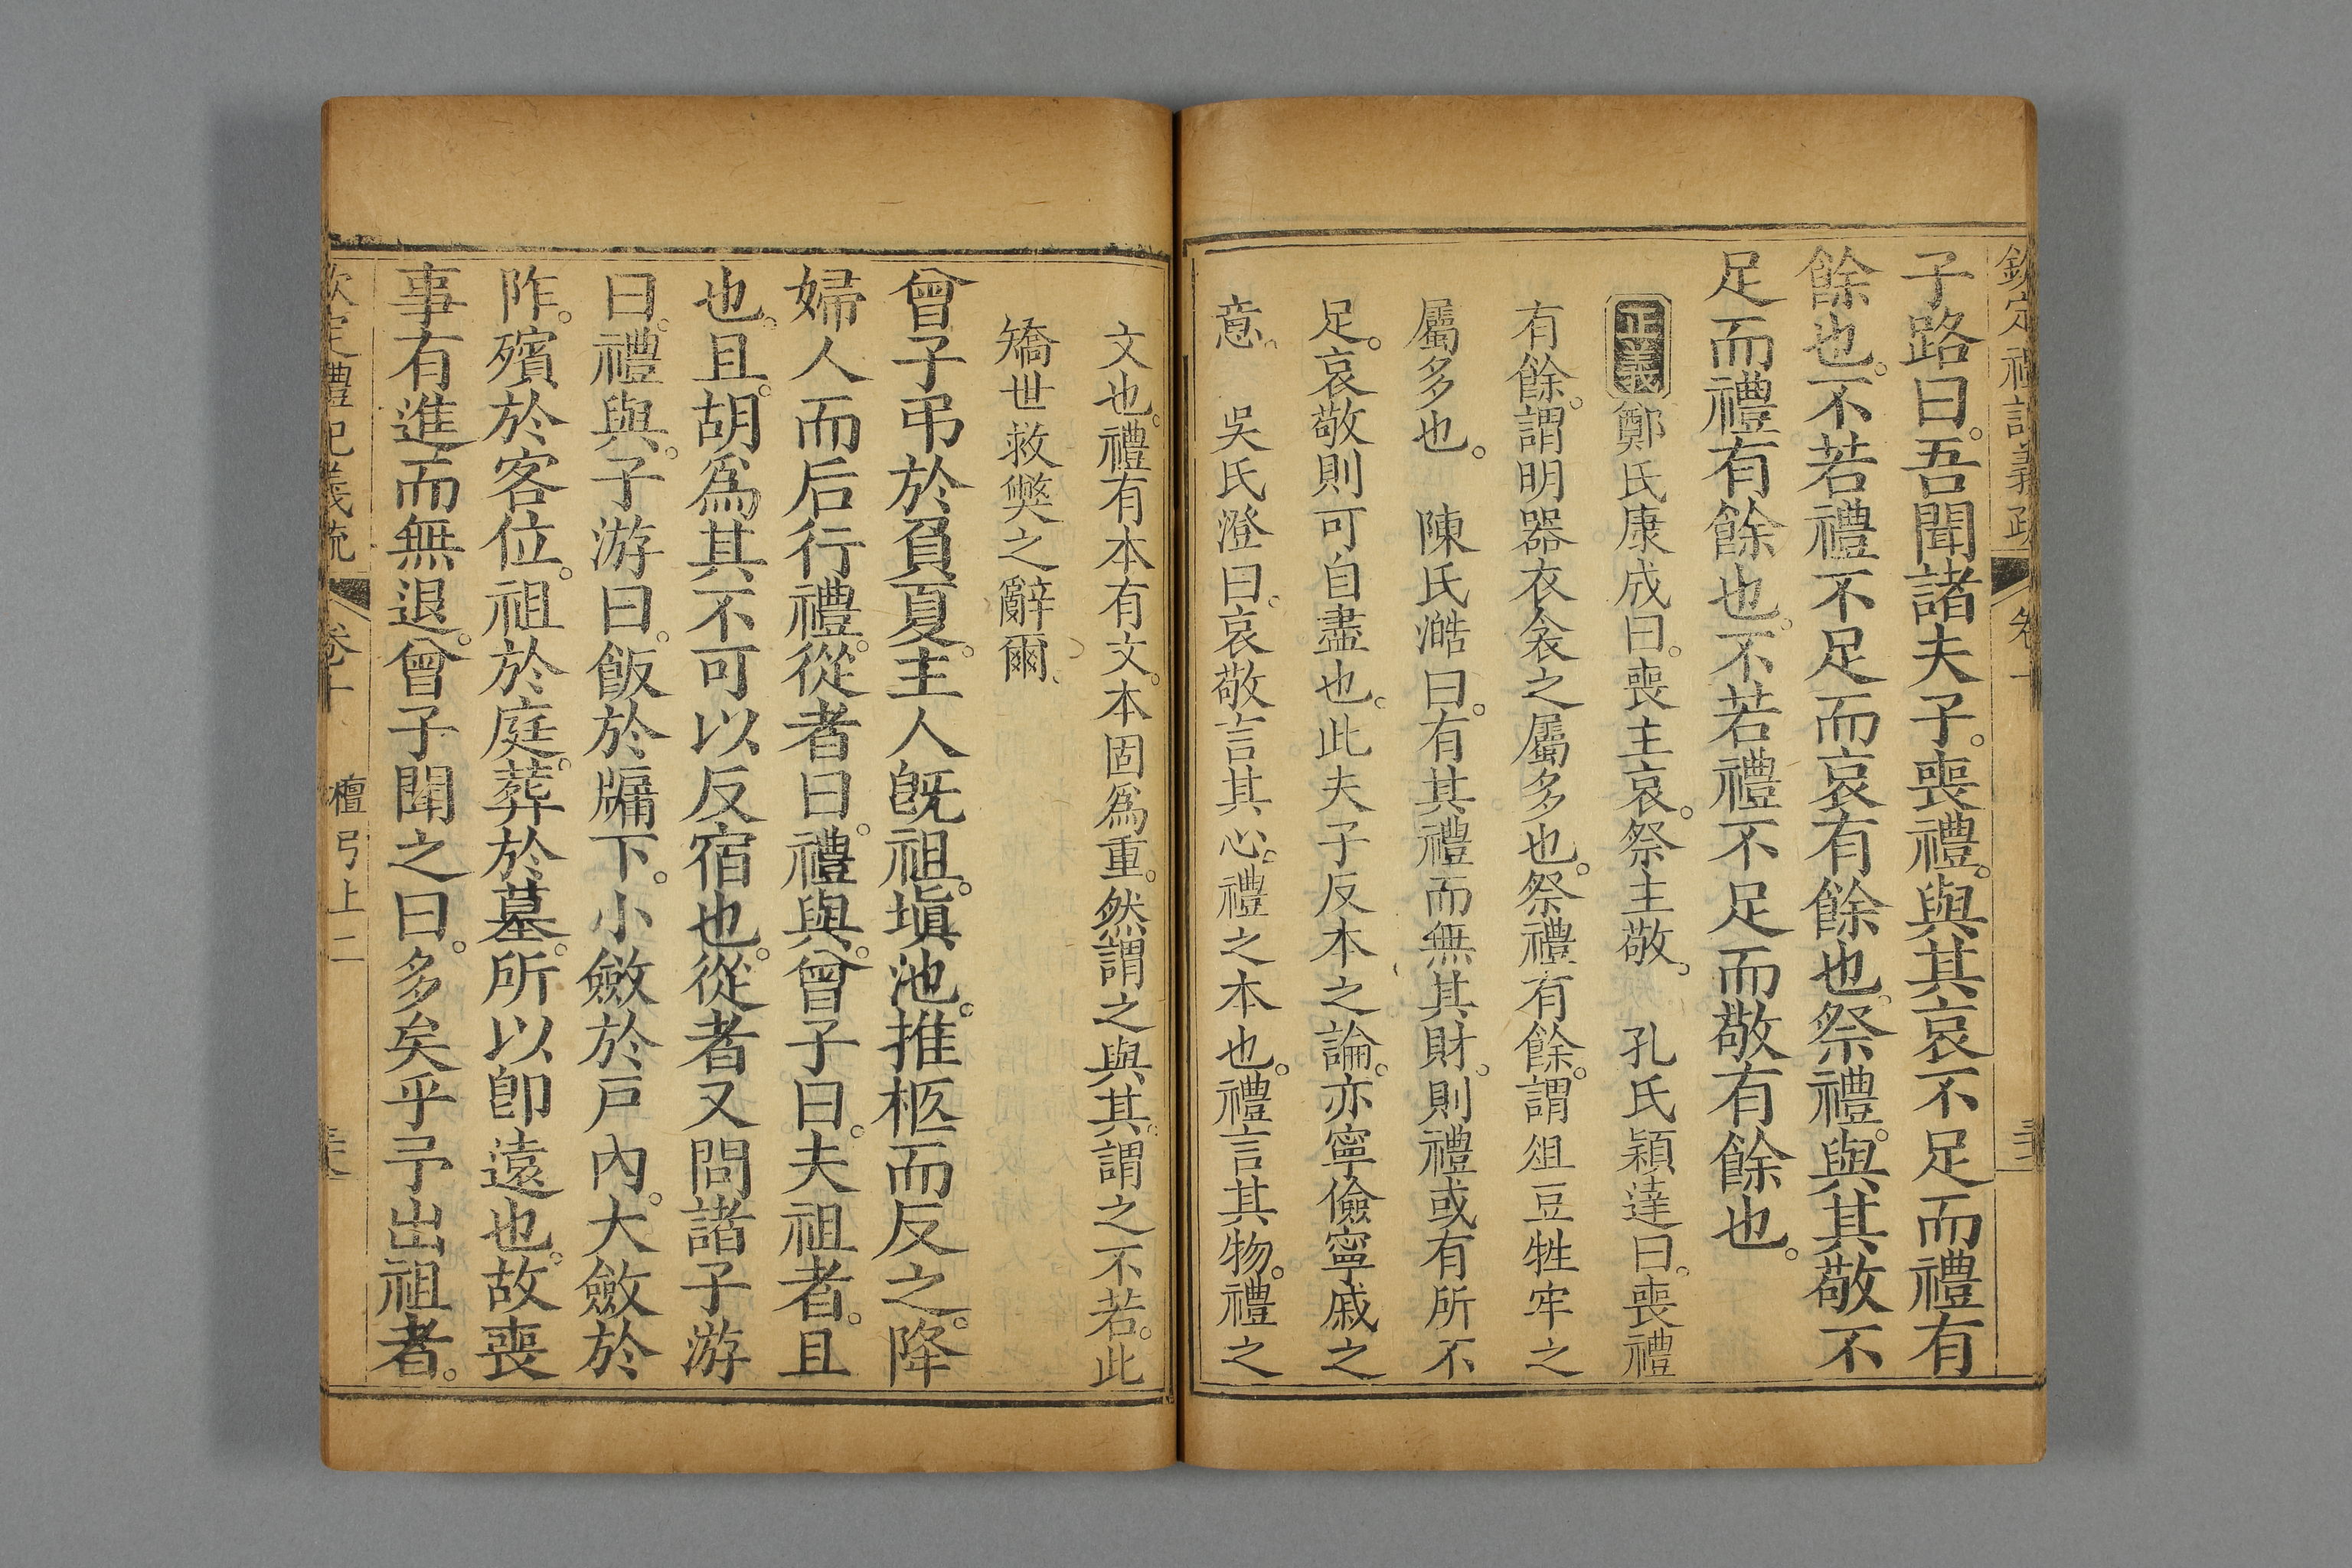 欽定禮記義疏 卷十
子路曰。吾聞諸夫子。喪禮。與其哀不足而禮有
餘也。不若禮不足而哀有餘也。祭禮。與其敬不
足而禮有餘也。不若禮不足而敬有餘也。
正義鄭氏康成曰。喪主哀。祭主敬。 孔氏穎達曰。喪禮
有餘。謂明器衣衾之屬多也。祭禮有餘。謂俎豆牲牢之
屬多也。 陳氏澔曰。有其禮而無其財。則禮或有所不
足。哀敬則可自盡也。此夫子反本之論。亦寧儉寧戚之
意。 吳氏澄曰。哀敬言其心。禮之本也。禮言其物。禮之
文也。禮有本有文。本固爲重。然謂之與其。謂之不若。此
矯世救獘之辭爾。
曾子弔於負夏。主人旣祖。塡池。推柩而反之。降
婦人而后行禮。從者曰。禮與。曾子曰。夫祖者。且
也。且。胡爲其不可以反宿也。從者又問諸子游
曰。禮與。子游曰。飯於牖下。小斂於戶內。大斂於
阼。殯於客位。祖於庭。葬於墓。所以卽遠也。故喪
事有進而無退。曾子聞之曰。多矣乎予出祖者。
欽定禮記義疏 卷十 檀弓上二